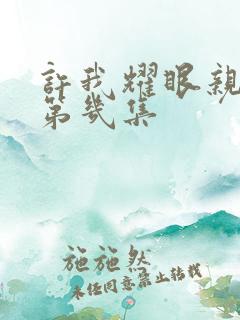 許我耀眼親
第幾集
施施然
未經同意禁止轉載